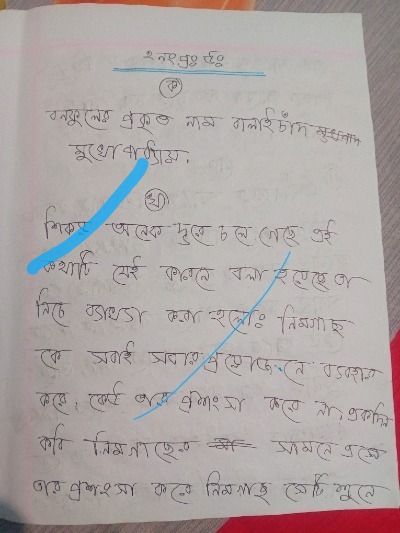 ২নং প্রঃ উঃ
ক
বনফুলের প্রকৃত নাম বলাইচাঁদ
মুখোপাধ্যায়।
খ
শিকড় অনেক দূরে চলে গেছে এই
কথাটি যেই কারনে বলা হয়েছে তা
নিচে ব্যাখ্যা করা হলোঃ নিমগাছ
কে সবাই সবার প্রয়োজনে ব্যবহার
করে, কেউ তার প্রশংসা করে না, একদিন
কবি নিমগাছের সামনে এসে
তার প্রশংসা করে নিমগাছ সেটি শুনে